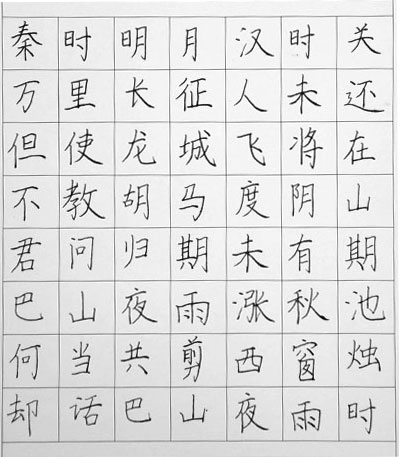 秦时明月汉时关
万里长征人未还
但使龙城飞将在
不教胡马度阴山
君问归期未有期
巴山夜雨涨秋池
何当共剪西窗烛
却话巴山夜雨时